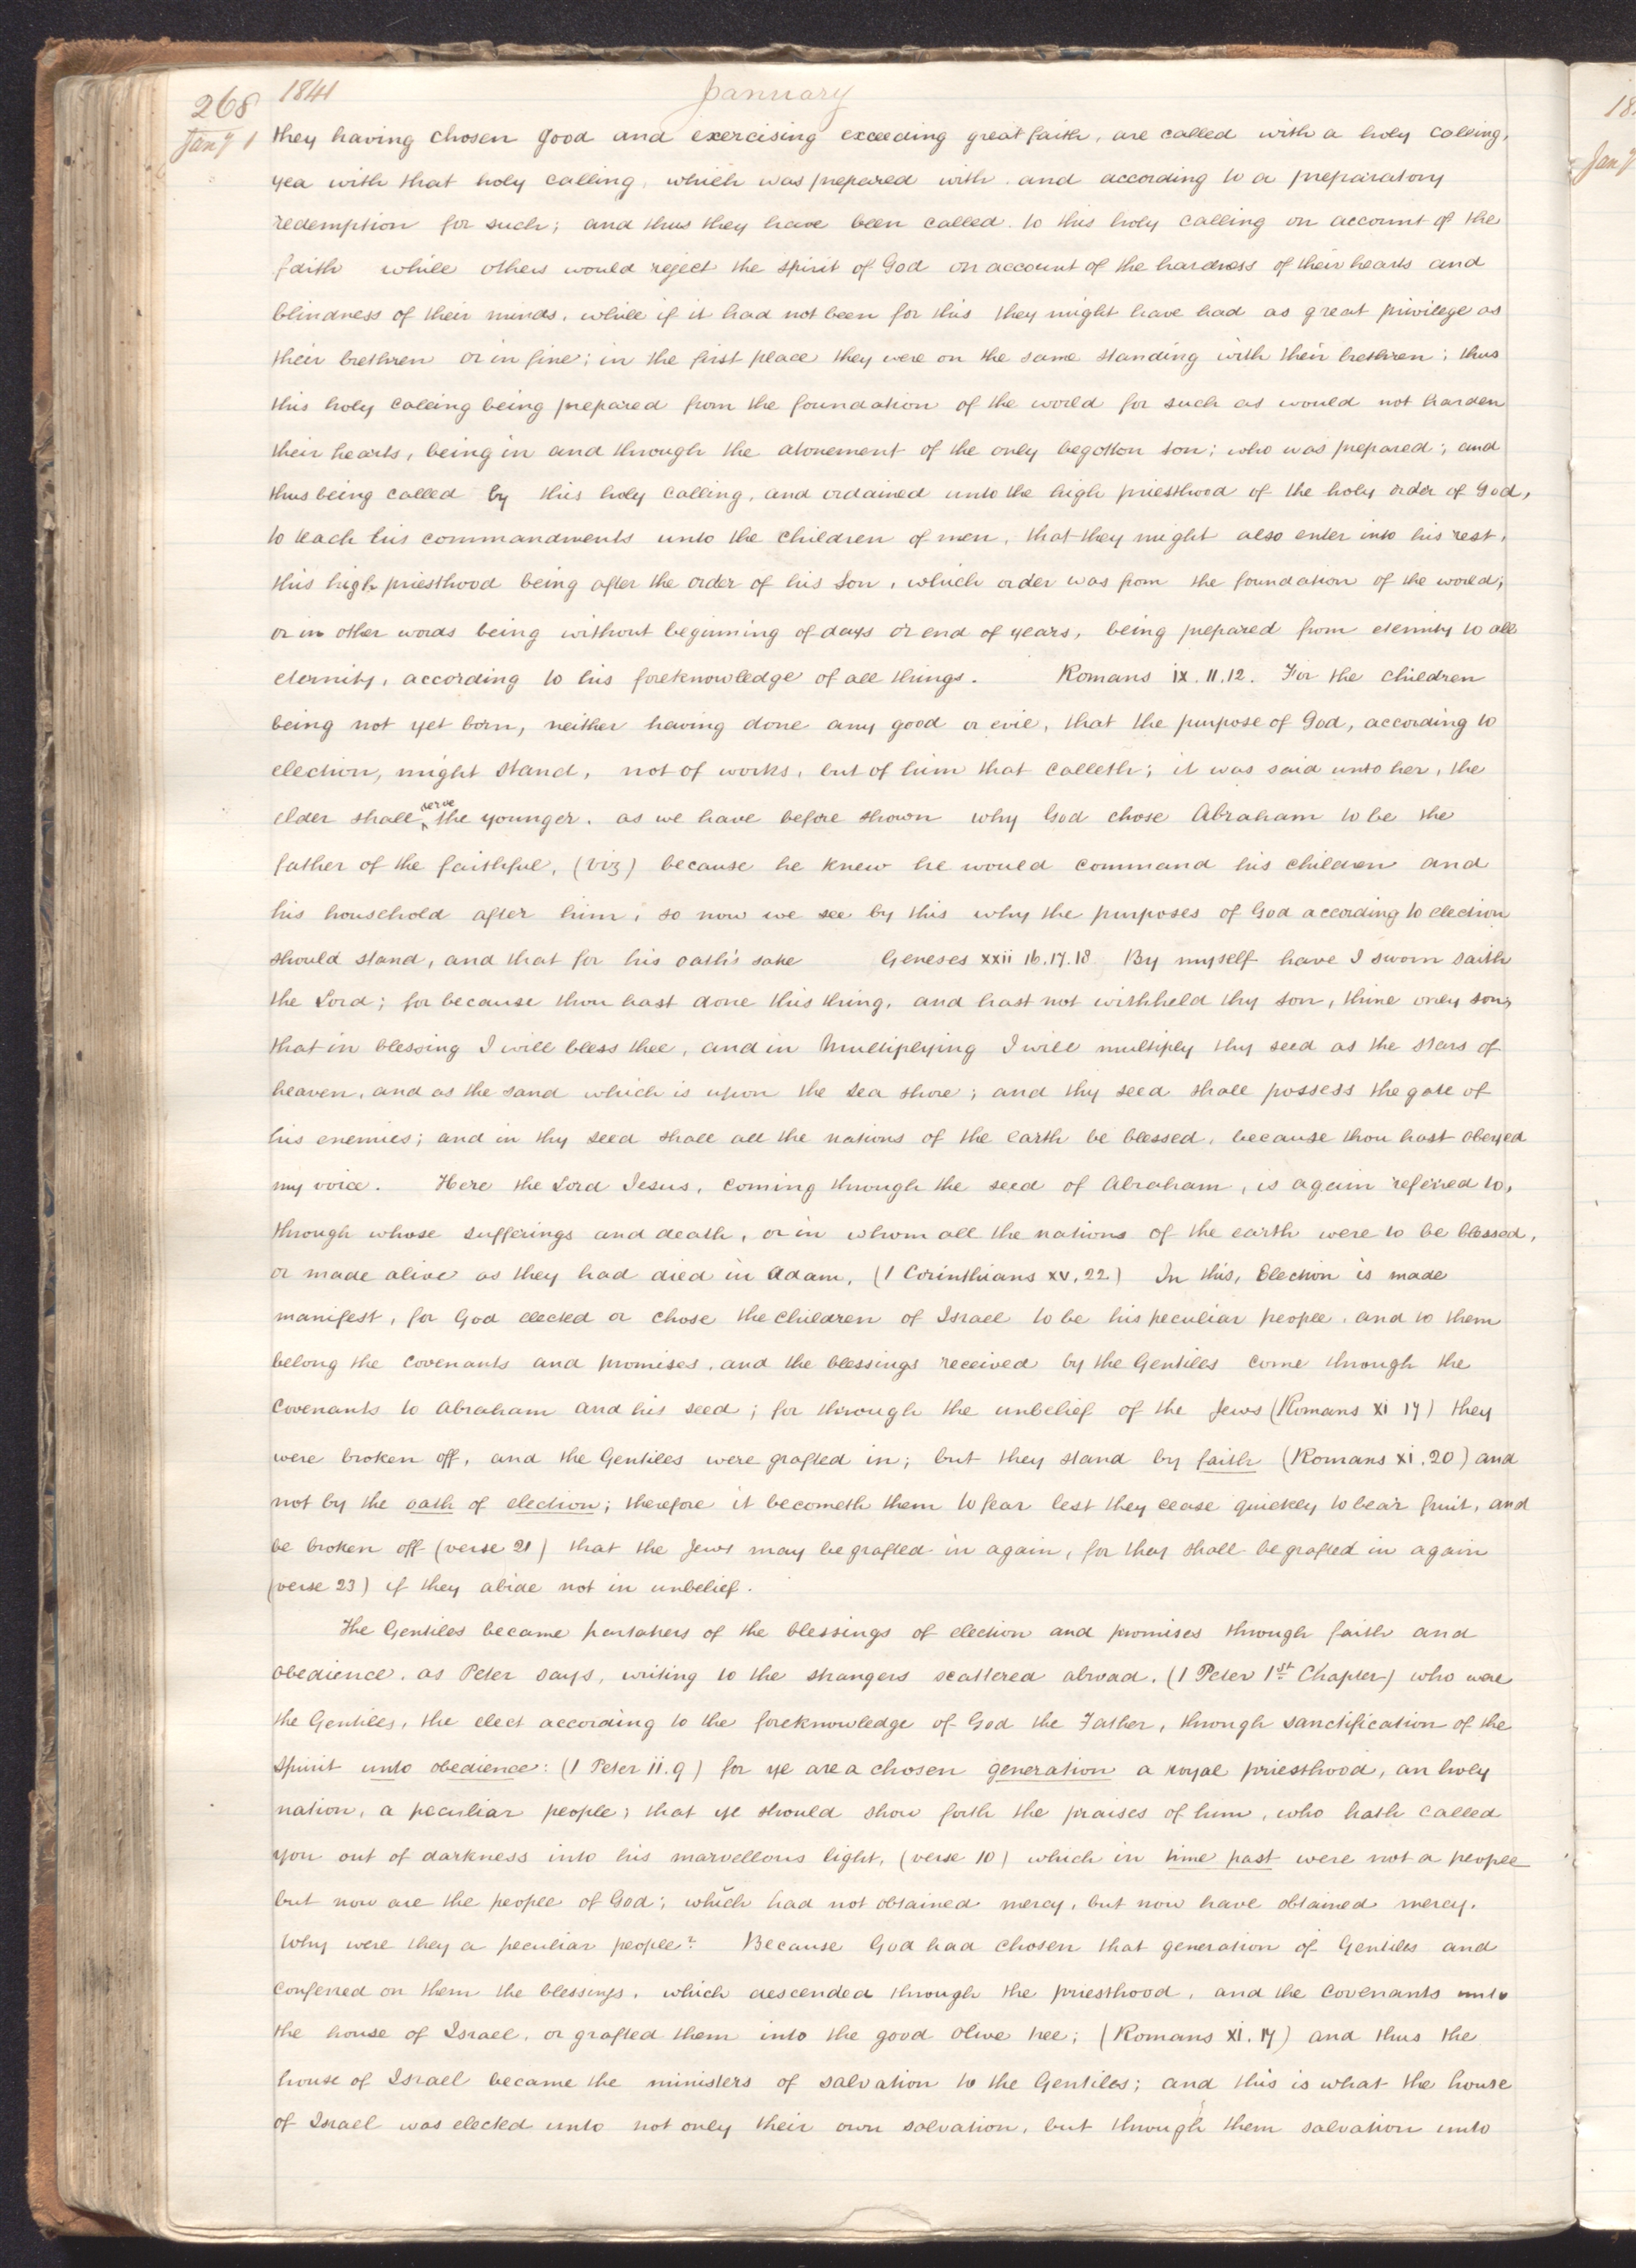 268 1841 January
Jany 1 they having chosen good and exercising exceeding great faith, are called with a holy calling,
yea with that holy calling, which was prepared with, and according to a preparatory
redemption for such; and thus they have been called to this holy calling on account of the
faith while others would reject the spirit of God on account of the hardness of their hearts and
blindness of their minds, while if it had not been for this they might have had as great privilege as
their brethren or in fine; in the first place they were on the same standing with their brethren; thus
this holy calling being prepared from the foundation of the world for such as would not harden
their hearts, being in and through the atonement of the only begotton son; who was prepared; and
thus being called by this holy calling, and ordained unto the high priesthood of the holy order of God,
to teach his commandments unto the children of men, that they might also enter into his rest,
this high priesthood being after the order of his Son, which order was from the foundation of the world;
or in other words being without beginning of days or end of years, being prepared from eternity to all
eternity, according to his foreknowledge of all things. Romans ix. 11. 12. For the children
being not yet born, neither having done any good or evil, that the purpose of God, according to
election, might stand, not of works, but of him that calleth; it was said unto her, the
elder shall serve the younger. as we have before shown why God chose Abraham to be the
father of the faithful, (viz) because he knew he would command his children and
his household after him, so now we see by this why the purposes of God according to election
should stand, and that for his oath's sake Geneses xxii 16. 17. 18 By myself have I sworn saith
the Lord; for because thou hast done this thing, and hast not withheld thy son, thine only son,
that in blessing I will bless thee, and in multiplying I will multiply thy seed as the stars of
heaven, and as the sand which is upon the sea shore; and thy seed shall possess the gate of
his enemies; and in thy seed shall all the nations of the earth be blessed, because thou hast obeyed
my voice. Here the Lord Jesus, coming through the seed of Abraham, is again referred to,
through whose sufferings and death, or in whom all the nations of the earth were to be blessed,
or made alive as they had died in Adam, (1 Corinthians xv. 22) In this, Election is made
manifest, for God elected or chose the children of Israel to be his peculiar people, and to them
belong the covenants and promises, and the blessings received by the Gentiles come through the
covenants to Abraham and his seed; for through the unbelief of the Jews (Romans xi 17) they
were broken off, and the Gentiles were grafted in; but they stand by faith (Romans xi. 20) and
not by the oath of election; therefore it becometh them to fear lest they cease quickly to bear fruit, and
be broken off (verse 21) that the Jews may be grafted in again, for they shall be grafted in again
(verse 23) if they abide not in unbelief.
The Gentiles became partakers of the blessings of election and promises through faith and
obedience, as Peter says, writing to the strangers scattered abroad, (1 Peter 1st Chapter) who were
the Gentiles, the elect according to the foreknowledge of God the Father, through sanctification of the
spirit unto obedience: (1 Peter ii. 9) for ye are a chosen generation a royal priesthood, an holy
nation, a peculiar people; that ye should show forth the praises of him, who hath called
you out of darkness into his marvellous light, (verse 10) which in time past were not a people
but now are the people of God; which had not obtained mercy, but now have obtained mercy.
Why were they a peculiar people? Because God had chosen that generation of Gentiles and
conferred on them the blessings, which descended through the priesthood, and the covenants unto
the house of Israel, or grafted them into the good olive tree; (Romans xi. 17) and thus the
house of Israel became the ministers of salvation to the Gentiles; and this is what the house
of Israel was elected unto not only their own salvation, but through them salvation unto
18
Jany